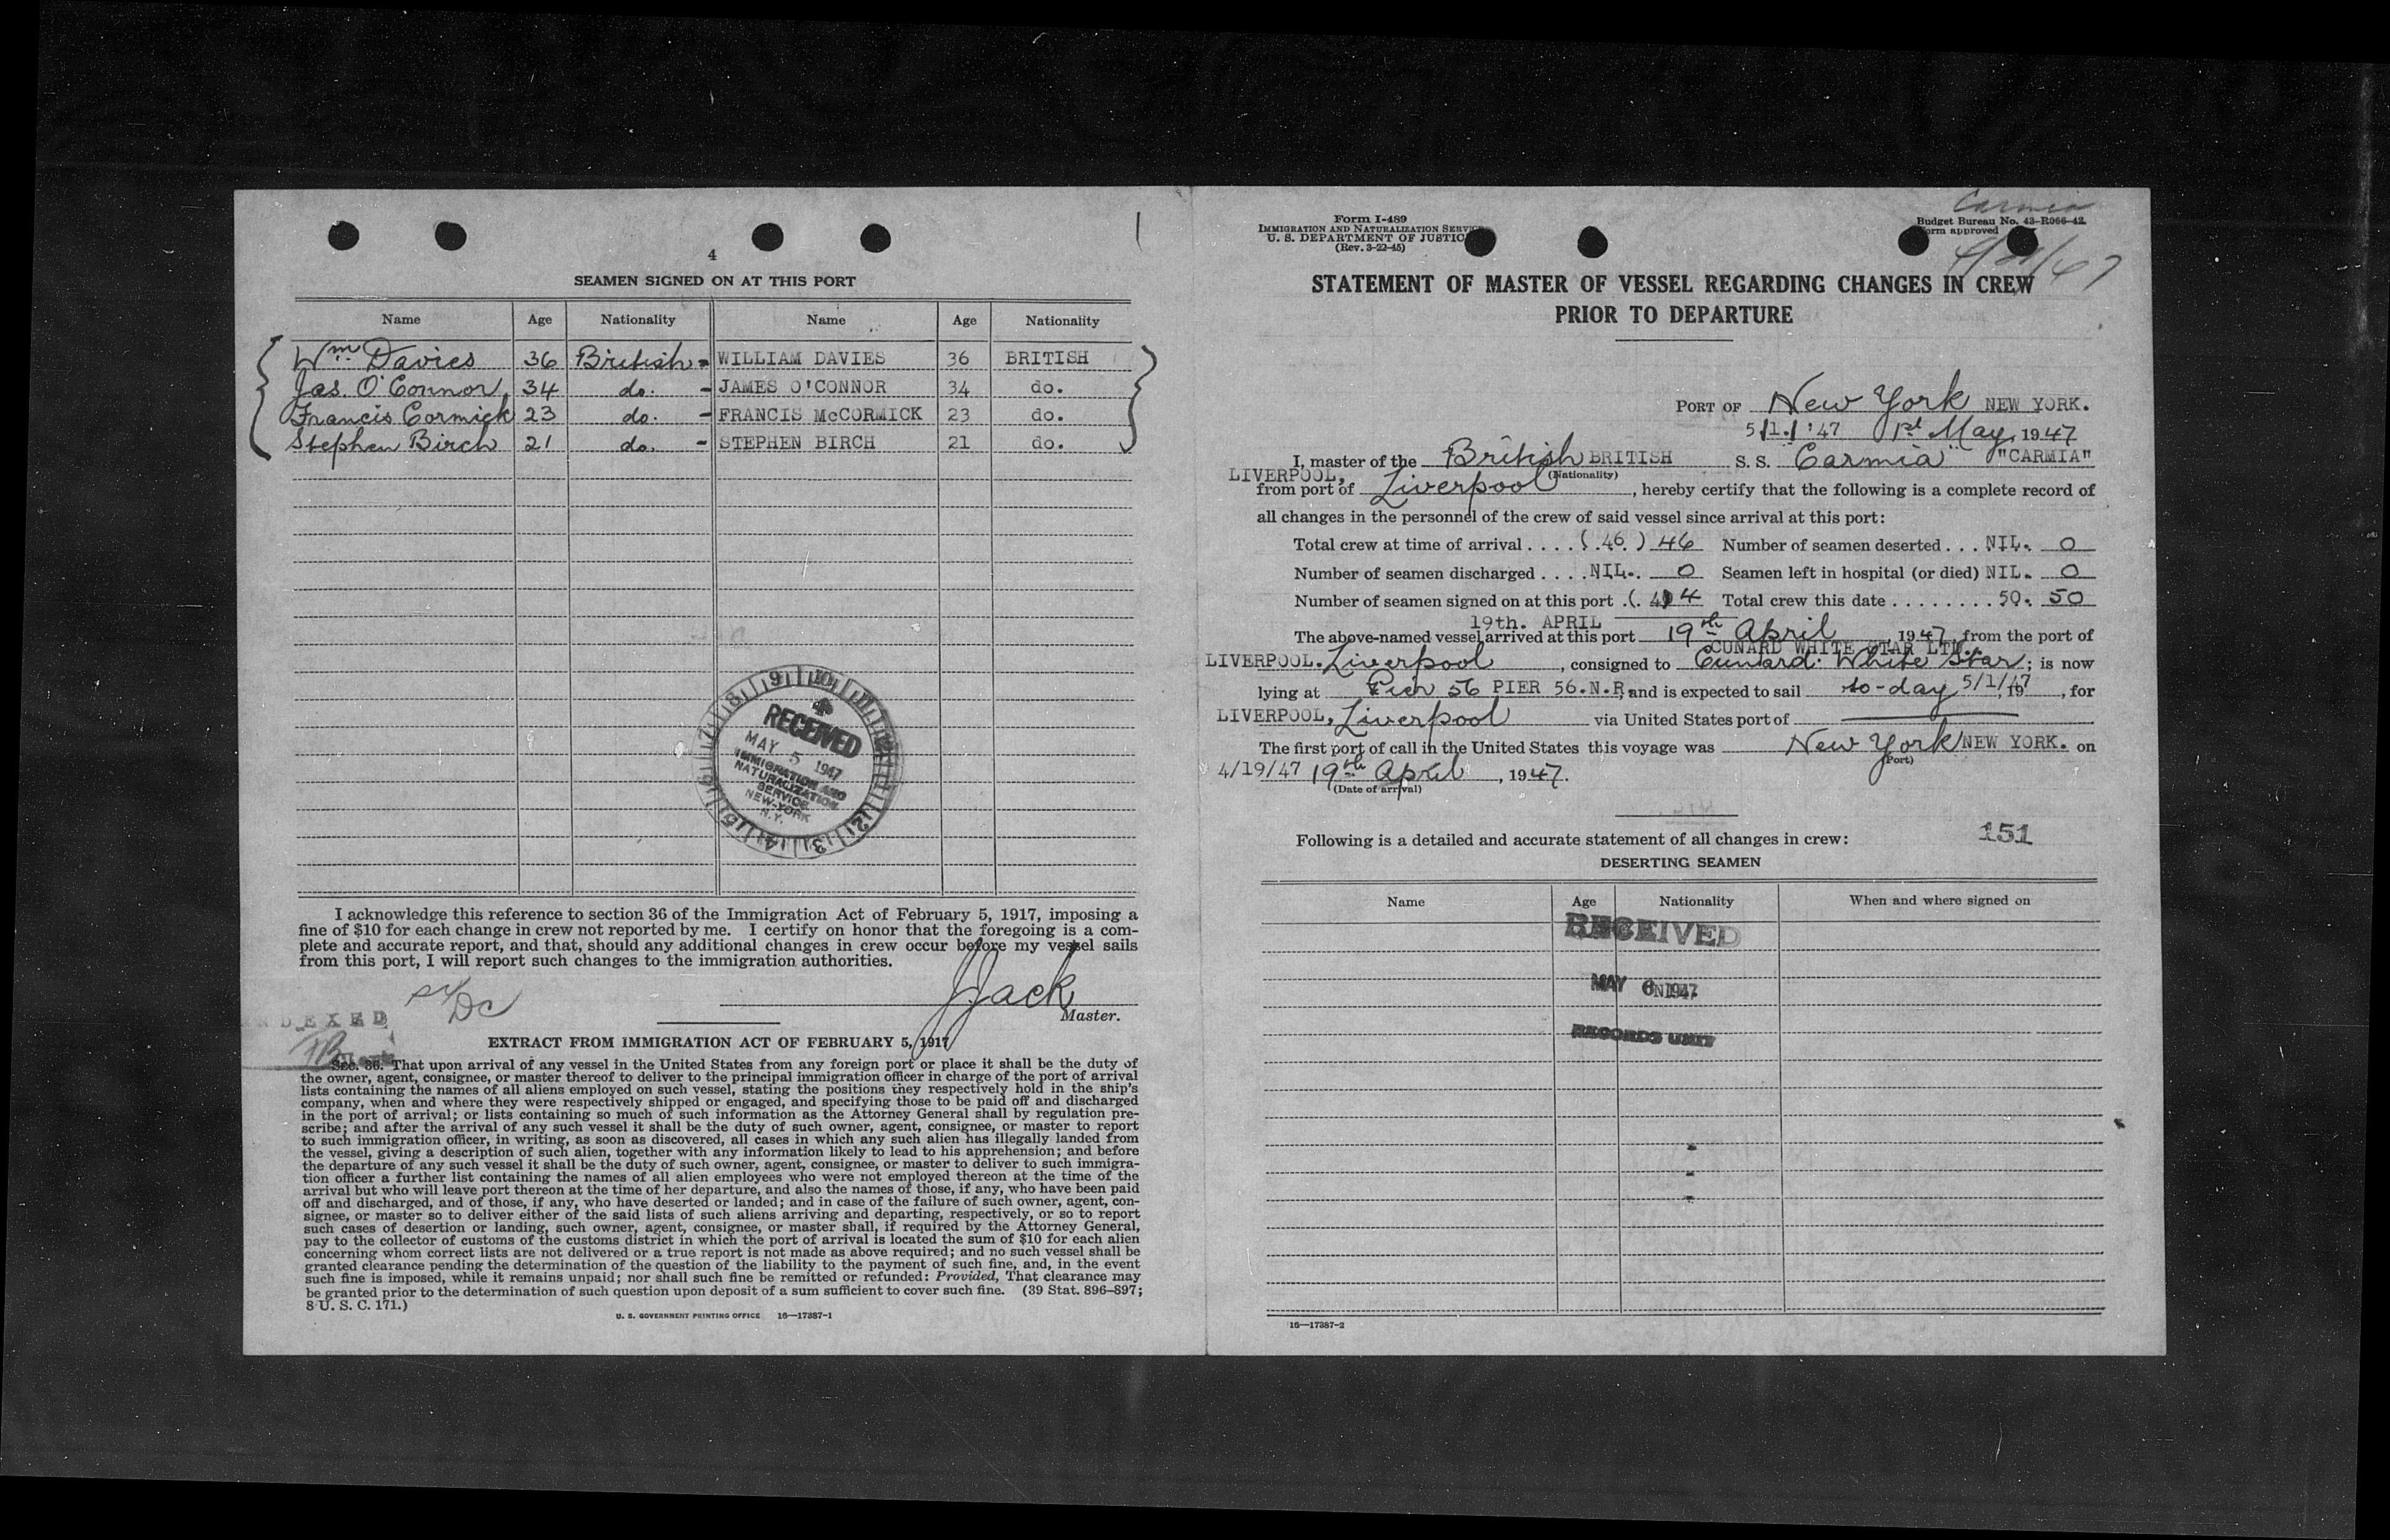 4
SEAMEN SIGNED ON AT THIS PORT
Name Age Nationality Name Age Nationality
Wm. Davies 36 British - WILLIAM DAVIES 36 BRITISH
Jas. O'Connor 34 do. - JAMES O'CONNOR 34 do.
Francis Cormick 23 do. - FRANCIS McCORMICK 23 do.
Stephen Birch 21 do. - STEPHEN BIRCH 21 do.
RECEIVED
MAY 5 1947
IMMIGRATION AND
NATURALIZATION
SERVICE
NEW-YORK
N.Y.
I acknowledge this reference to section 36 of the Immigration Act of February 5, 1917, imposing a
fine of $10 for each change in crew not reported by me. I certify on honor that the foregoing is a com-
plete and accurate report, and that, should any additional changes in crew occur before my vessel sails
from this port, I will report such changes to the immigration authorities.
J Jack
Master.
INDEXED
EXTRACT FROM IMMIGRATION ACT OF FEBRUARY 5, 1917
Sec. 36. That upon arrival of any vessel in the United States from any foreign port or place it shall be the duty of
the owner, agent, consignee, or master thereof to deliver to the principal immigration officer in charge of the port of arrival
lists containing the names of all aliens employed on such vessel, stating the positions they respectively hold in the ship's
company, when and where they were respectively shipped or engaged, and specifying those to be paid off and discharged
in the port of arrival; or lists containing so much of such information as the Attorney General shall by regulation pre-
scribe; and after the arrival of any such vessel it shall be the duty of such owner, agent, consignee, or master to report
to such immigration officer, in writing, as soon as discovered, all cases in which any such alien has illegally landed from
the vessel, giving a description of such alien, together with any information likely to lead to his apprehension; and before
the departure of any such vessel it shall be the duty of such owner, agent, consignee, or master to deliver to such immigra-
tion officer a further list containing the names of all alien employees who were not employed thereon at the time of the
arrival but who will leave port thereon at the time of her departure, and also the names of those, if any, who have been paid
off and discharged, and of those, if any, who have deserted or landed; and in case of the failure of such owner, agent, con-
signee, or master so to deliver either of the said lists of such aliens arriving and departing, respectively, or so to report
such cases of desertion or landing, such owner, agent, consignee, or master shall, if required by the Attorney General,
pay to the collector of customs of the customs district in which the port of arrival is located the sum of $10 for each alien
concerning whom correct lists are not delivered or a true report is not made as above required; and no such vessel shall be
granted clearance pending the determination of the question of the liability to the payment of such fine, and, in the event
such fine is imposed, while it remains unpaid; nor shall such fine be remitted or refunded: Provided, That clearance may
be granted prior to the determination of such question upon deposit of a sum sufficient to cover such fine. (39 Stat. 896-897;
8 U. S. C. 171.)
U. S. GOVERNMENT PRINTING OFFICE 16—17387-1
Carmia
Form I-489
IMMIGRATION AND NATURALIZATION SERVICE
U. S. DEPARTMENT OF JUSTICE
(Rev. 3-22-45)
Budget Bureau No. 43-R066-42.
Form approved
STATEMENT OF MASTER OF VESSEL REGARDING CHANGES IN CREW
PRIOR TO DEPARTURE
PORT OF New York NEW YORK.
5/1/'47 1st May, 1947
I, master of the British BRITISH S. S. "Carmia" "CARMIA"
(Nationality)
LIVERPOOL,
from port of Liverpool, hereby certify that the following is a complete record of
all changes in the personnel of the crew of said vessel since arrival at this port:
Total crew at time of arrival . . . . (.46.) 46 Number of seamen deserted . . . NIL. 0
Number of seamen discharged . . . . NIL. 0 Seamen left in hospital (or died) NIL. 0
Number of seamen signed on at this port .(. 4) 4 Total crew this date . . . . . . . . 50. 50
19th. APRIL
The above-named vessel arrived at this port 19th April, 1947, from the port of
CUNARD WHITE STAR LTD.
LIVERPOOL. Liverpool, consigned to Cunard White Star; is now
lying at Pier 56 PIER 56.N.R, and is expected to sail to-day 5/1/47, 19 , for
LIVERPOOL, Liverpool via United States port of
The first port of call in the United States this voyage was New York NEW YORK. on
(Port)
4/19/47 19th April, 1947.
(Date of arrival)
Following is a detailed and accurate statement of all changes in crew: 151
DESERTING SEAMEN
Name Age Nationality When and where signed on
RECEIVED
MAY 6 1947
NIL.
RECORDS UNIT
16—17387-2